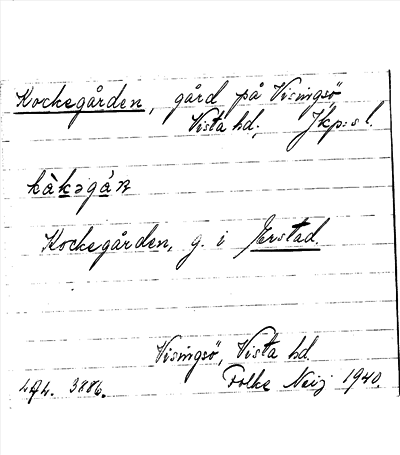 Kockegården, gård på Visingsö,
Vista hd. Jkp:s l.
kàkəgán
Kockegården, g. i Erstad.
Visingsö, Vista hd.
3886.
Folke Neij 1940.